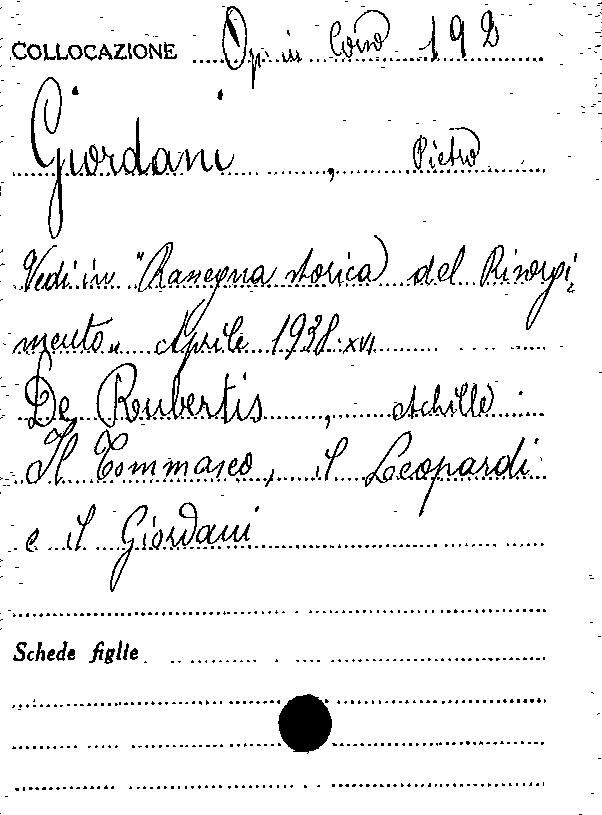 COLLOCAZIONE Op in Corso 192
Giordani, Pietro
Vedi in "Rassegna storica del Risorgi,
mento" Aprile 1938-XVI
De Rubertis, Achille
Il Tommaseo, il Leopardi
e il Giordani
Schede figlie